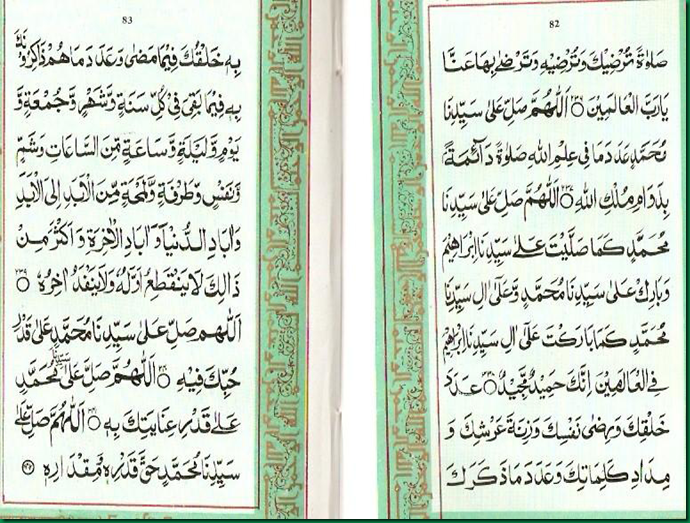 82
صَلٰوةً تُرْضِيْكَ وَتُرْضِيْهِ وَتَرْضٰى بِهَا عَنَّا
يَارَبَّ الْعَالَمِيْنَ اَللّٰهُمَّ صَلِّ عَلٰى سَيِّدِنَا
مُحَمَّدٍ عَدَدَ مَا فِى عِلْمِ اللهِ صَلٰوةً دَآئِمَةً
بِدَوَامِ مُلْكِ اللهِ اَللّٰهُمَّ صَلِّ عَلٰى سَيِّدِنَا
مُحَمَّدٍ كَمَا صَلَّيْتَ عَلٰى سَيِّدِنَا اِبْرَاهِيْمَ
وَبَارِكْ عَلٰى سَيِّدِنَا مُحَمَّدٍ وَّعَلٰى اٰلِ سَيِّدِنَا
مُحَمَّدٍ كَمَا بَارَكْتَ عَلٰى اٰلِ سَيِّدِنَا اِبْرَاهِيْمَ
فِى الْعَالَمِيْنَ اِنَّكَ حَمِيْدٌ مَّجِيْدٌ عَدَدَ
خَلْقِكَ وَرِضٰى نَفْسِكَ وَزِنَةَ عَرْشِكَ وَ
مِدَادَ كَلِمَاتِكَ وَعَدَدَ مَا ذَكَرَكَ
83
بِهٖ خَلْقُكَ فِيْمَا مَضٰى وَعَدَدَ مَا هُمْ ذَاكِرُوْنَكَ
بِهٖ فِيْمَا بَقِىَ فِىْ كُلِّ سَنَةٍ وَّشَهْرٍ وَّجُمُعَةٍ وَّ
يَوْمٍ وَّلَيْلَةٍ وَّسَاعَةٍ مِّنَ السَّاعَاتِ وَشَمٍّ
وَّنَفَسٍ وَّطَرْفَةٍ وَّلَمْحَةٍ مِّنَ الْاَبَدِ اِلَى الْاَبَدِ
وَاٰبَادِ الدُّنْيَا وَاٰبَادِ الْاٰخِرَةِ وَاَكْثَرَ مِنْ
ذَالِكَ لَا يَنْقَطِعُ اَوَّلُهٗ وَلَا يَنْفَدُ اٰخِرُهٗ
اَللّٰهُمَّ صَلِّ عَلٰى سَيِّدِنَا مُحَمَّدٍ عَلٰى قَدْرِ
حُبِّكَ فِيْهِ اَللّٰهُمَّ صَلِّ عَلٰى سَيِّدِنَا مُحَمَّدٍ
عَلٰى قَدْرِ عِنَايَتِكَ بِهٖ اَللّٰهُمَّ صَلِّ عَلٰى
سَيِّدِنَا مُحَمَّدٍ حَقَّ قَدْرِهٖ وَمِقْدَارِهٖ